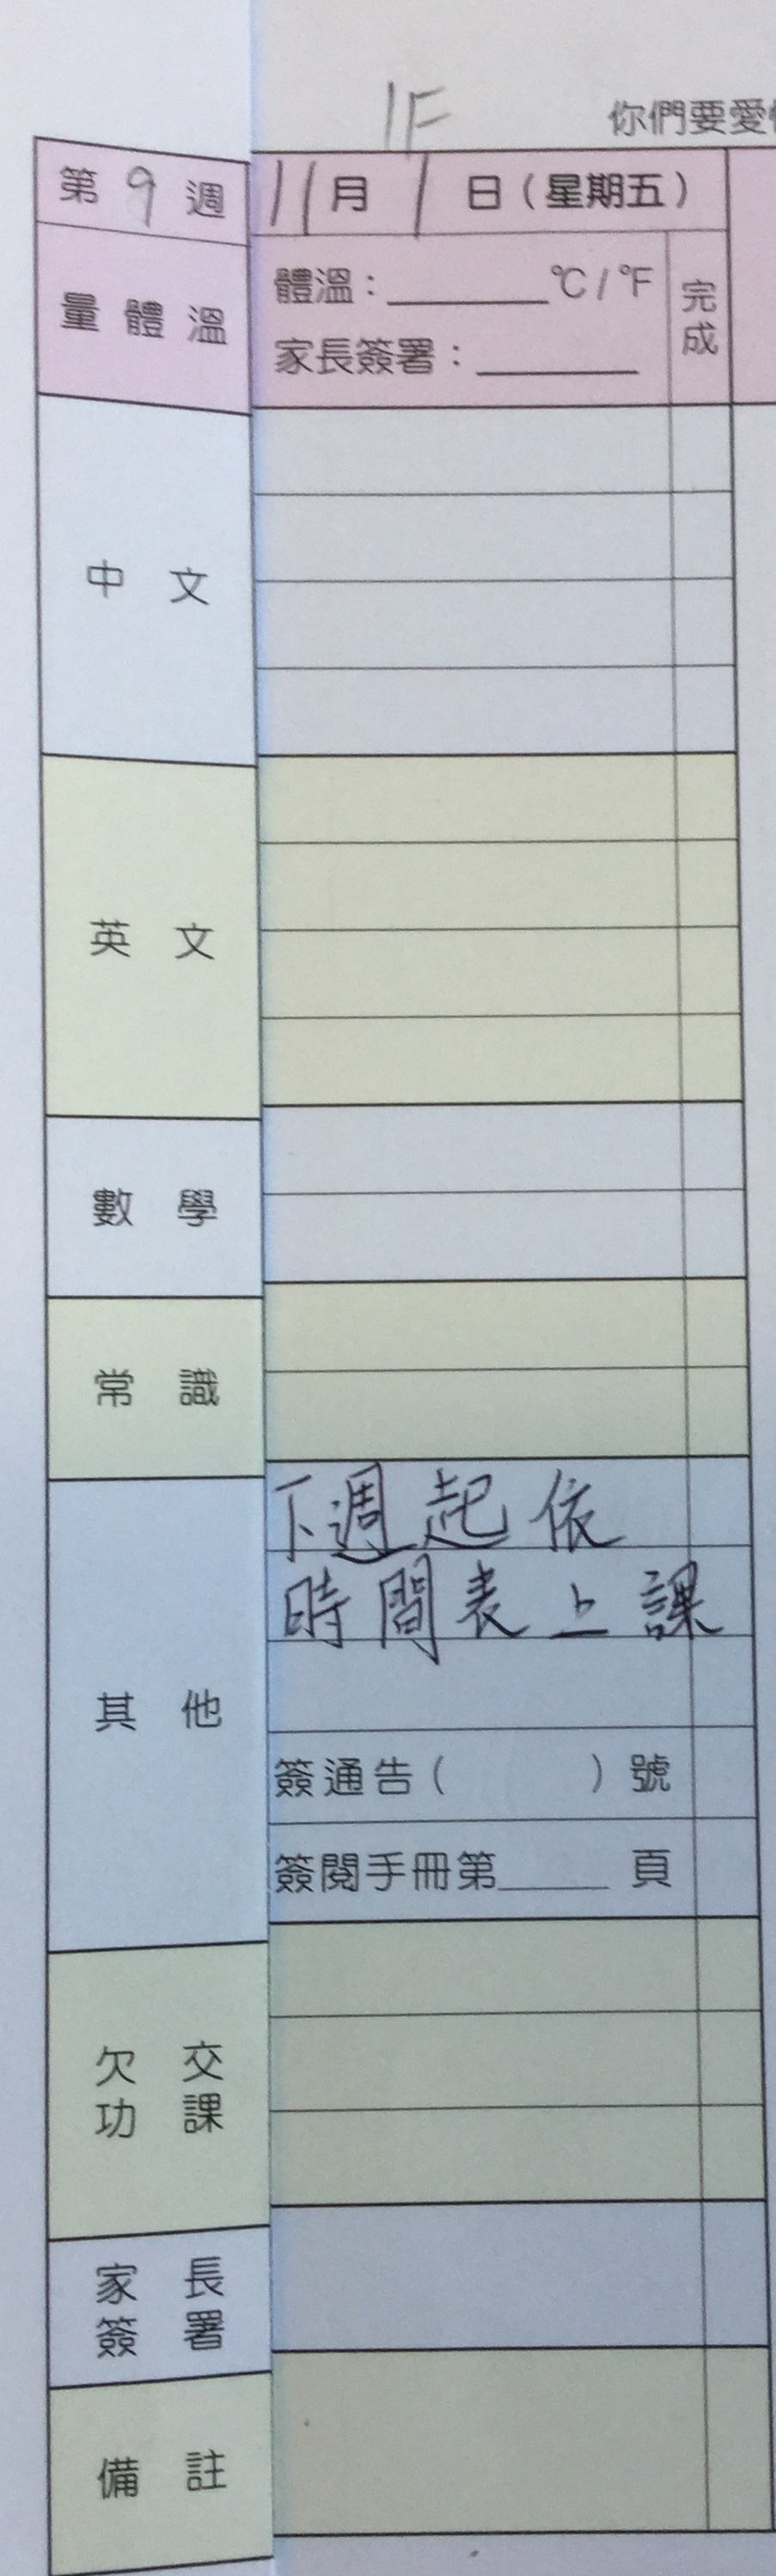 1F
你們要愛
第9週 11月1日(星期五)
量體溫
體溫:______℃/℉
家長簽署:______
完成
中文
英文
數學
常識
其他
下週起依
時間表上課
簽通告( )號
簽閱手冊第____頁
欠交
功課
家長
簽署
備註